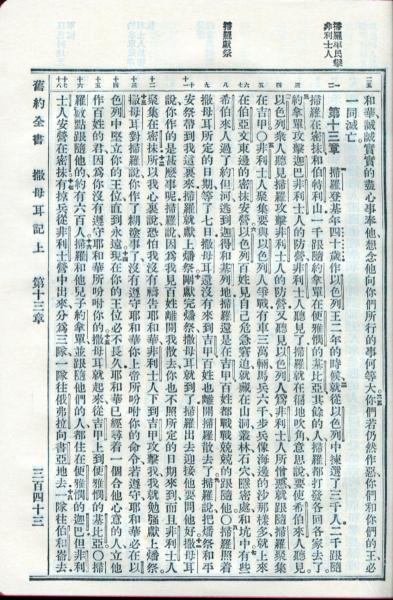 掃羅率民擊
非利士人
掃羅獻祭
和華誠誠實實的盡心事奉他想念他向你們所行的事何等大。你們若仍然作惡你們和你們的王必
一同滅亡。
第十三章 掃羅登基年四十歲作以色列王二年的時候就從以色列中揀選了三千人二千跟隨
掃羅在密抹和伯特利山一千跟隨約拿單在便雅憫的基比亞其餘的人掃羅都打發各回各家去了。
約拿單攻擊迦巴非利士人的防營非利士人聽見了掃羅就在徧地吹角意思說要使希伯來人聽見。
以色列衆人聽見掃羅攻擊非利士人的防營又聽見以色列人爲非利士人所憎惡就跟隨掃羅聚集
在吉甲○非利士人聚集要與以色列人爭戰有車三萬輛馬兵六千步兵像海邊的沙那樣多就上來
在伯亞文東邊的密抹安營以色列百姓見自己危急窘迫就藏在山洞叢林石穴隱密處和坑中有些
希伯來人過了約但河逃到迦得和基列地掃羅還是在吉甲百姓都戰戰兢兢的跟隨他○掃羅照着
撒母耳所定的日期等了七日撒母耳還沒有來到吉甲百姓也離開掃羅散去了掃羅說把燔祭和平
安祭帶到我這裏來掃羅就獻上燔祭剛獻完燔祭撒母耳就到了掃羅出去迎接他要問他好撒母耳
說你作的是甚麼事呢掃羅說因爲我見百姓離開我散去你也不照所定的日期來到而且非利士人
聚集在密抹所以我心裏說恐怕我沒有禱告耶和華非利士人下到吉甲攻擊我我就勉強獻上燔祭。
撒母耳對掃羅說你作了糊塗事了沒有遵守耶和華你上帝所吩咐你的命令若遵守耶和華必在以
色列中堅立你的王位直到永遠現在你的王位必不長久耶和華已經尋着一個合他心意的人立他
作百姓的君因爲你沒有遵守耶和華所吩咐你的撒母耳就起來從吉甲上到便雅憫的基比亞○掃
羅數點跟隨他的約有六百人掃羅和他兒子約拿單並跟隨他們的人都住在便雅憫的迦巴但非利
士人安營在密抹有掠兵從非利士營中出來分爲三隊一隊往俄弗拉向書亞地去一隊往伯和崙去
舊約全書 撒母耳記上 第十三章 三百四十三